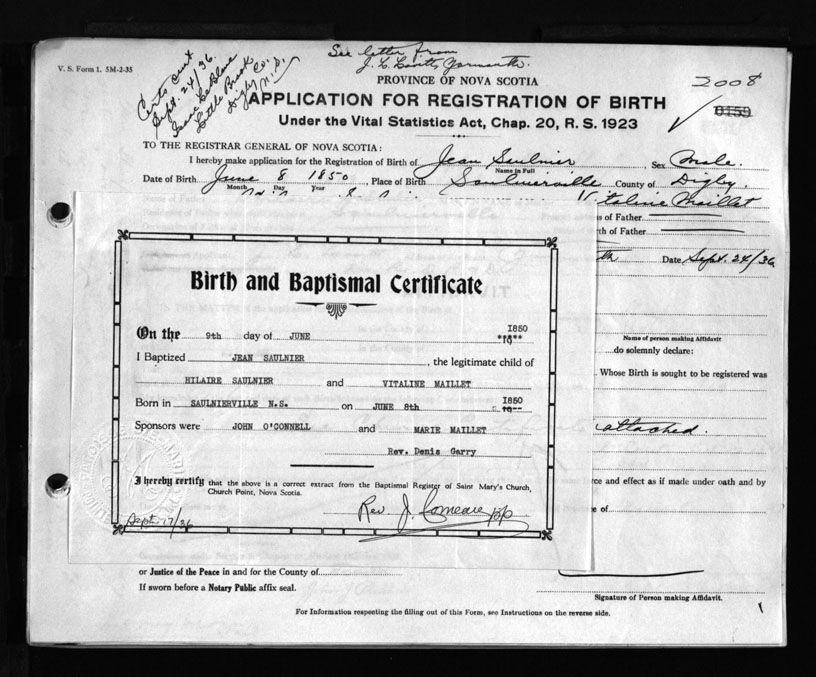 V. S. Form 1. 5M-2-35
See letter from
J. L. Yarmouth
Certs sent
Sept. 24/36.
Isaac LeBlanc
Little Brook
Digby Co.
N.S.
PROVINCE OF NOVA SCOTIA
2008
APPLICATION FOR REGISTRATION OF BIRTH
0159
Under the Vital Statistics Act, Chap. 20, R. S. 1923
TO THE REGISTRAR GENERAL OF NOVA SCOTIA:
I hereby make application for the Registration of Birth of Jean Saulnier Sex Male.
Name in Full
Date of Birth June 8 1850, Place of Birth Saulnierville County of Digby.
Month Day Year
Vitaline Maillet
s of Father
th of Father
th Date Sept. 24/36
Birth and Baptismal Certificate
On the 9th day of JUNE 1850
**19**
I Baptized JEAN SAULNIER, the legitimate child of
HILAIRE SAULNIER and VITALINE MAILLET
Born in SAULNIERVILLE N.S. on JUNE 8th 1850
19--
Sponsors were JOHN O'CONNELL and MARIE MAILLET
Rev. Denis Garry
I hereby certify that the above is a correct extract from the Baptismal Register of Saint Mary's Church,
Church Point, Nova Scotia.
Rev J. Comeau pp
Sept. 17/36
Name of person making Affidavit
do solemnly declare:
. Whose Birth is sought to be registered was
attached.
rce and effect as if made under oath and by
e of
or Justice of the Peace in and for the County of
If sworn before a Notary Public affix seal.
Signature of Person making Affidavit.
For Information respecting the filling out of this Form, see Instructions on the reverse side.